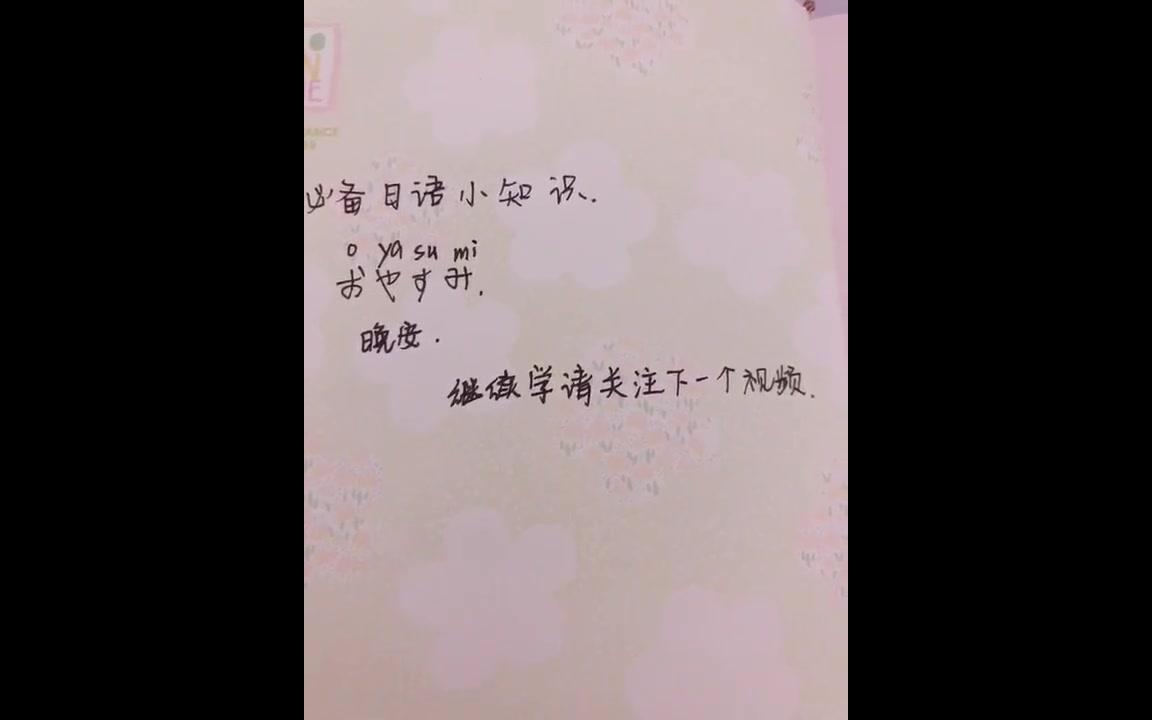 必备日语小知识.
o ya su mi
おやすみ.
晚安.
继续学请关注下一个视频.